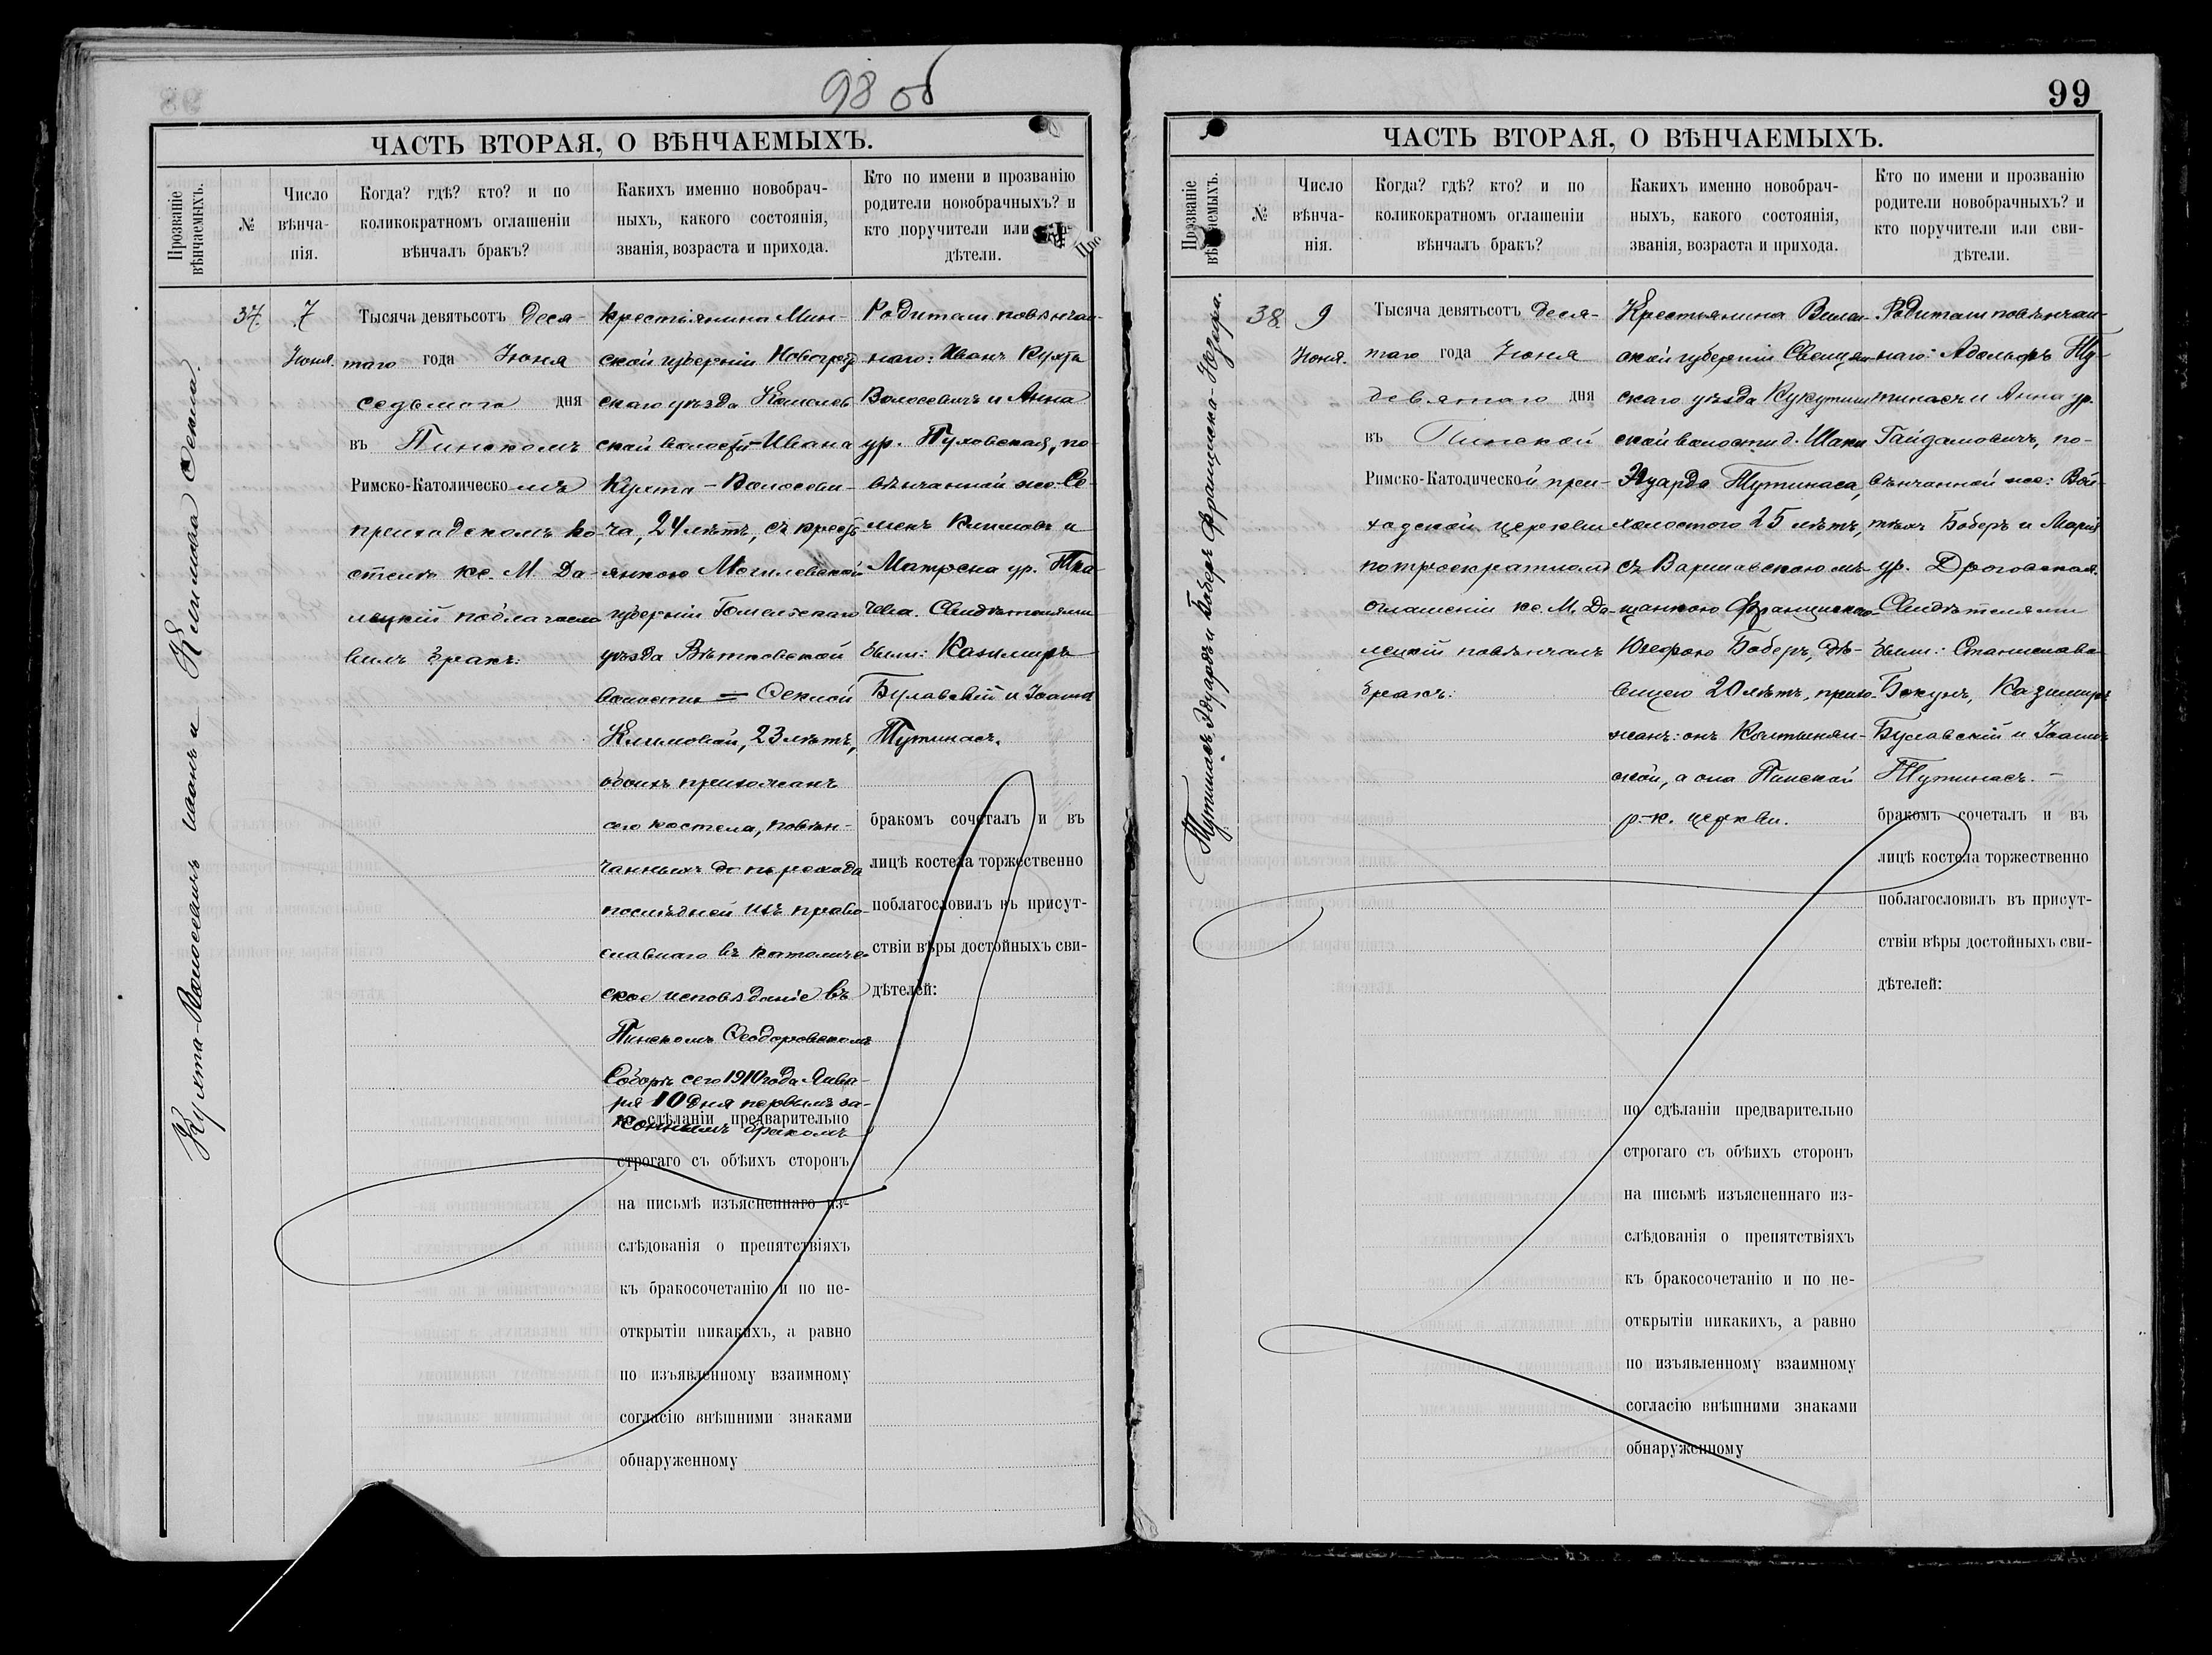 98 об
ЧАСТЬ ВТОРАЯ, О ВѢНЧАЕМЫХЪ.
Прозваніе
вѣнчаемыхъ.
№
Число
вѣнча-
нія.
Когда? гдѣ? кто? и по
коликократномъ оглашеніи
вѣнчалъ бракъ?
Какихъ именно новобрач-
ныхъ, какого состоянія,
званія, возраста и прихода.
Кто по имени и прозванію
родители новобрачныхъ? и
кто поручители или
дѣтели.
Кухта-Волосевичъ Иванъ и Климова Фекла.
37.
7
Іюня.
Тысяча девятьсотъ деся-
таго года Іюня
седьмого дня
въ Пинскомъ
Римско-Католическомъ
приходскомъ ко-
стелѣ кс. М. Да-
лецкій поблагосло-
вилъ бракъ:
Крестьянина Мин-
ской губерніи Новогруд
скаго уѣзда Кошелев
ской волости Ивана
Кухта-Волосеви-
ча, 24 лѣтъ, съ кресть
янкою Могилевской
губерніи Гомельскаго
уѣзда Вѣтковской
волости — Феклой
Климовой, 23 лѣтъ,
обоихъ прихожанъ
сего костела, повѣн-
чанныхъ до перехода
послѣдней изъ право-
славнаго въ католиче-
ское исповѣданіе въ
Пинскомъ Феодоровскомъ
Соборѣ сего 1910 года Янва-
ря 10 дня первымъ за-
коннымъ бракомъ
по сдѣланіи предварительно
строгаго съ обѣихъ сторонъ
на письмѣ изъясненнаго из-
слѣдованія о препятствіяхъ
къ бракосочетанію и по не-
открытіи никакихъ, а равно
по изъявленному взаимному
согласію внѣшними знаками
обнаруженному
Родители повѣнчан-
наго: Иванъ Кухта
Волосевичъ и Анна
ур. Пуховская, по-
вѣнчанной же: Се-
менъ Климовъ и
Матрена ур. Тка-
чева. Свидѣтелями
были: Казимиръ
Булавскій и Іоаннъ
Тутинасъ.
бракомъ сочеталъ и въ
лицѣ костела торжественно
поблагословилъ въ присут-
ствіи вѣры достойныхъ сви-
дѣтелей:
99
ЧАСТЬ ВТОРАЯ, О ВѢНЧАЕМЫХЪ.
Прозваніе
вѣнчаемыхъ.
№
Число
вѣнча-
нія.
Когда? гдѣ? кто? и по
коликократномъ оглашеніи
вѣнчалъ бракъ?
Какихъ именно новобрач-
ныхъ, какого состоянія,
званія, возраста и прихода.
Кто по имени и прозванію
родители новобрачныхъ? и
кто поручители или сви-
дѣтели.
Тутинасъ Эдуардъ и Боберъ Франциска-Юзефа.
38.
9
Іюня.
Тысяча девятьсотъ деся-
таго года Іюня
девятаго дня
въ Пинской
Римско-Католической при-
ходской церкви
по троекратномъ
оглашеніи кс. М. Да-
лецкій повѣнчалъ
бракъ:
Крестьянина Вилен-
ской губерніи Свенцян-
скаго уѣзда Кукутиш
ской волости д. Шаки
Эдуарда Тутинаса,
холостого 25 лѣтъ,
съ Варшавскою мѣ-
щанкою Францискою-
Юзефою Боберъ, дѣ-
вицею 20 лѣтъ, прихо-
жанъ: онъ Колтынян-
ской, а она Пинской
р.-к. церкви.
по сдѣланіи предварительно
строгаго съ обѣихъ сторонъ
на письмѣ изъясненнаго из-
слѣдованія о препятствіяхъ
къ бракосочетанію и по не-
открытіи никакихъ, а равно
по изъявленному взаимному
согласію внѣшними знаками
обнаруженному
Родители повѣнчан-
наго: Адольфъ Ту-
тинасъ и Анна ур.
Гайдамовичъ, по-
вѣнчанной же: Вой-
тѣхъ Боберъ и Марія
ур. Дроговская.
Свидѣтелями
были: Станиславъ
Бокунъ, Казимиръ
Булавскій и Іоаннъ
Тутинасъ. —
бракомъ сочеталъ и въ
лицѣ костела торжественно
поблагословилъ въ присут-
ствіи вѣры достойныхъ сви-
дѣтелей: